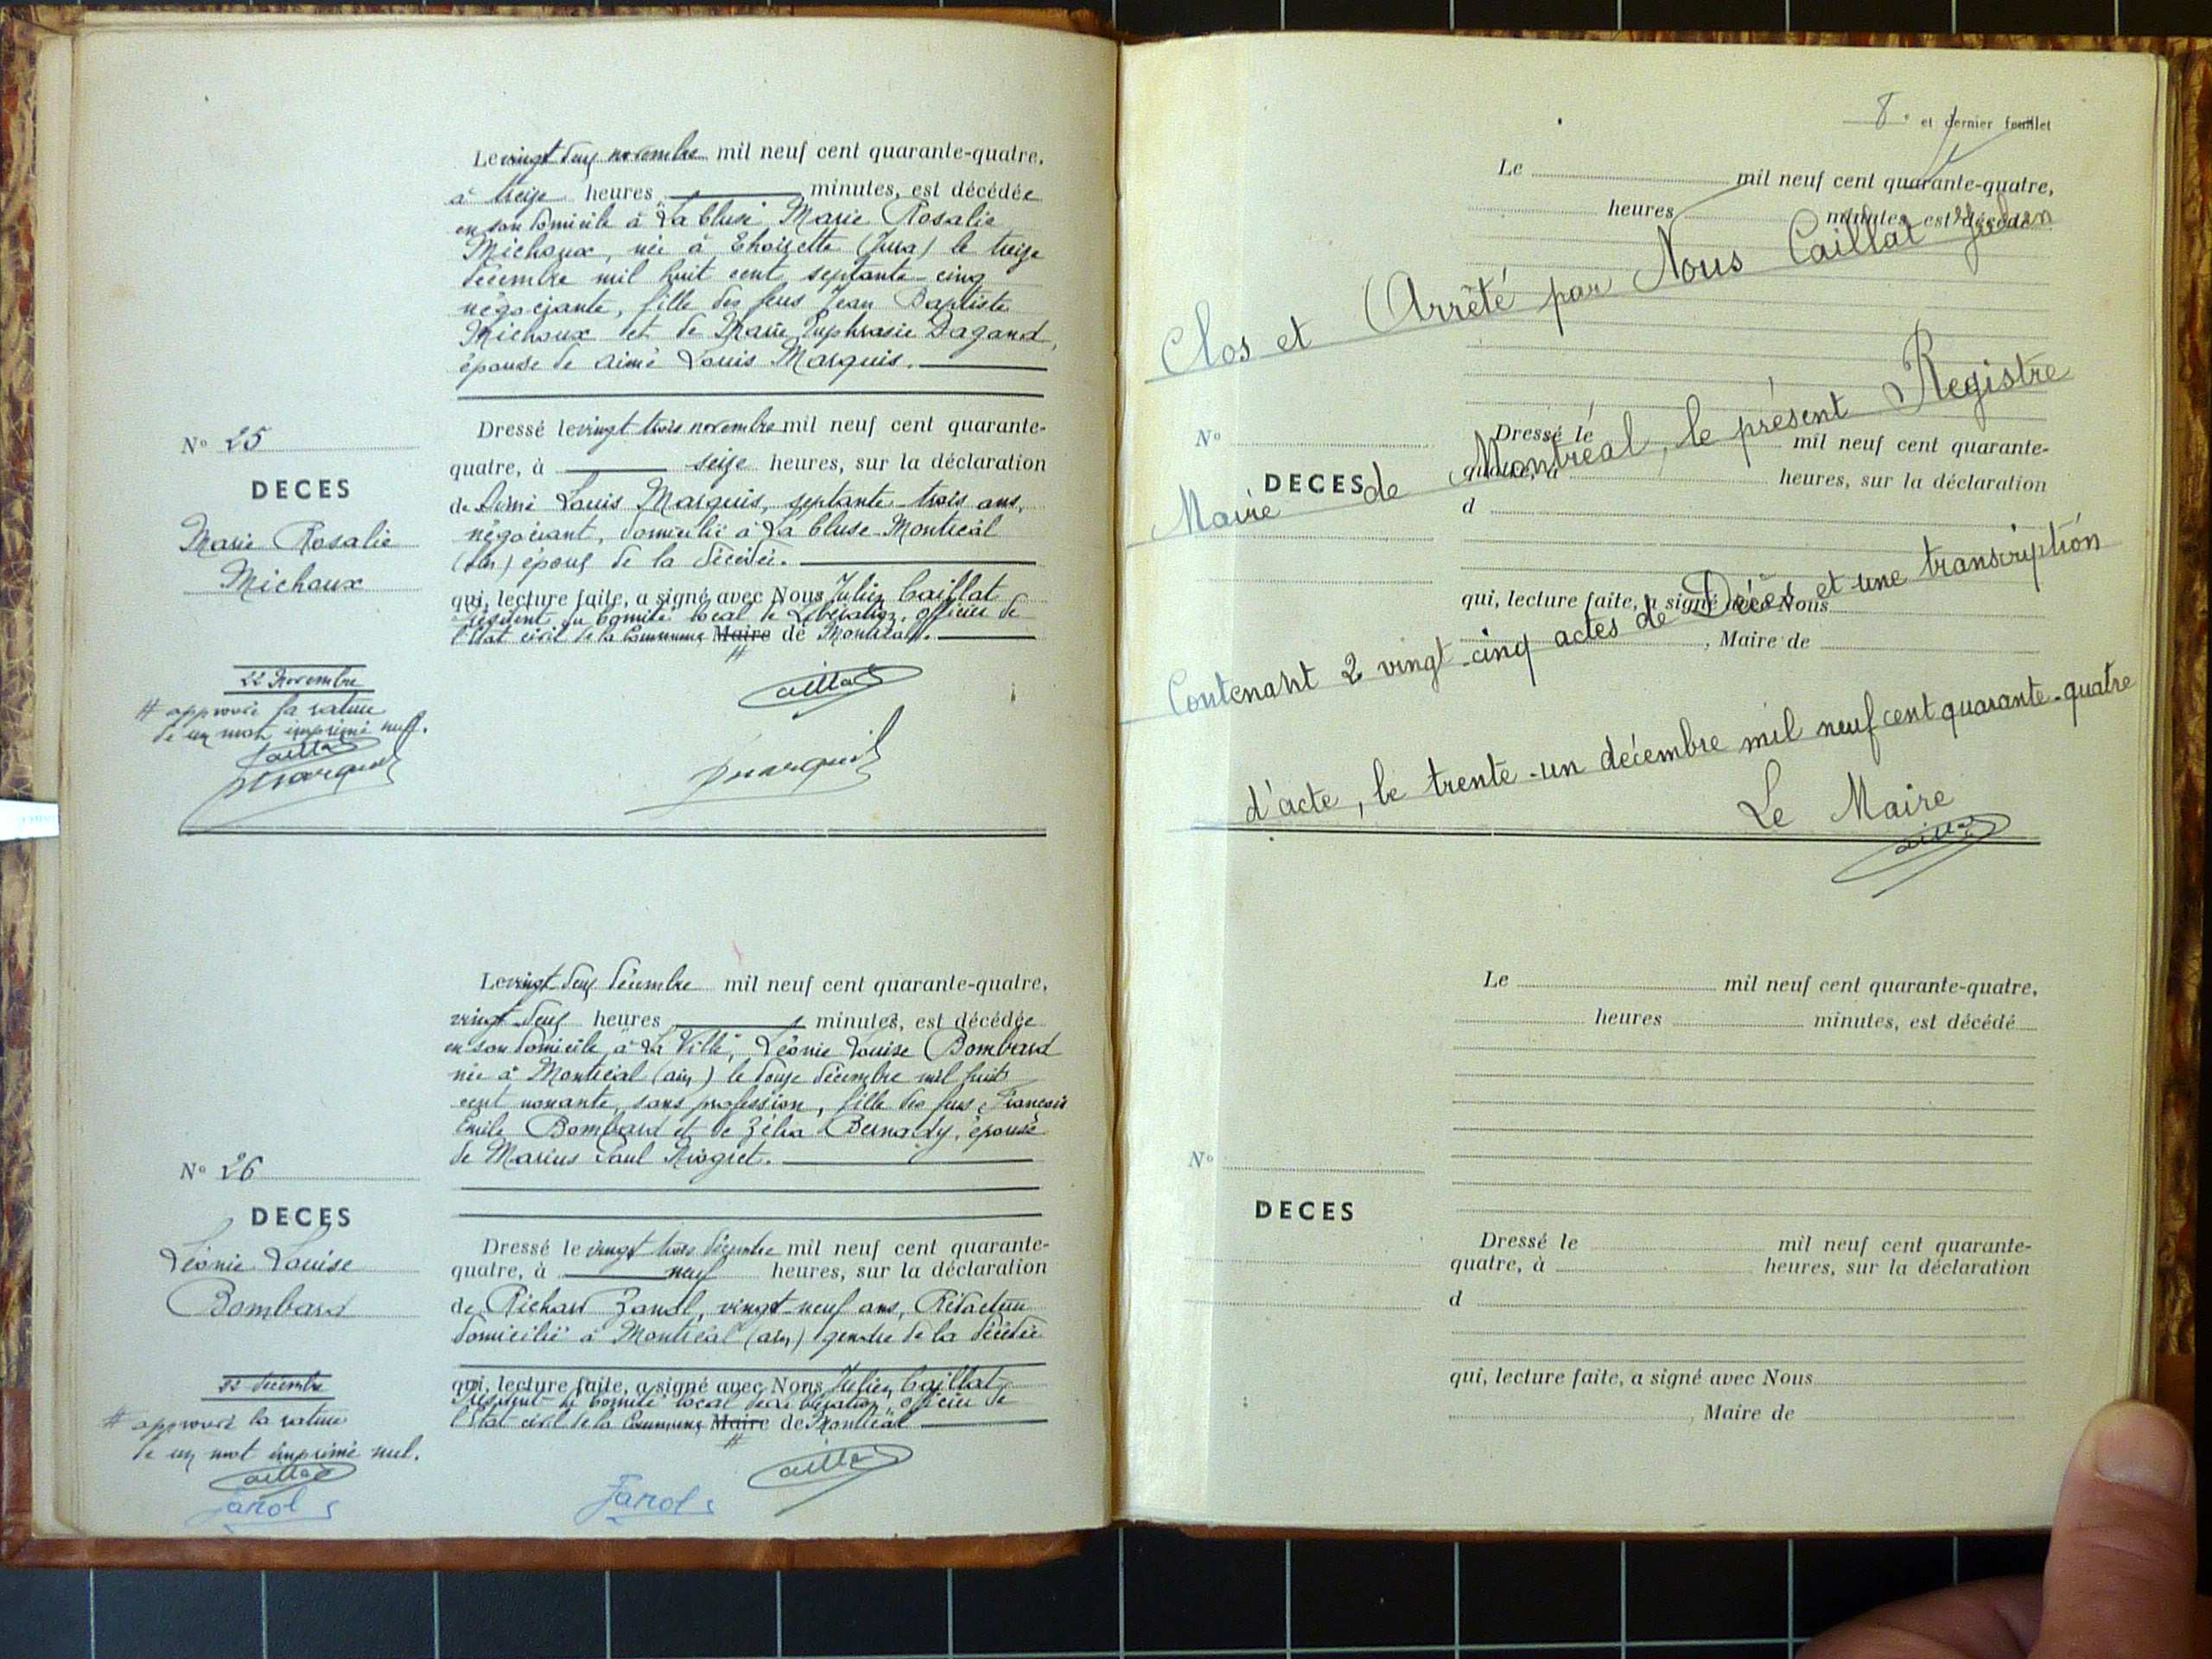 Le vingt deux novembre mil neuf cent quarante-quatre,
à treize heures minutes, est décédée
en son domicile à "La Cluse" Marie Rosalie
Michaux, née à (Jura) le treize
décembre mil huit cent septante-cinq
négociante, fille des feus Jean Baptiste
Michaux et de Marie Euphrasie Dagand,
épouse de Aimé Louis Marquis.
N° 25
DECES
Marie Rosalie
Michaux
Dressé le vingt trois novembre mil neuf cent quarante-
quatre, à seize heures, sur la déclaration
de Aimé Louis Marquis, septante-trois ans,
négociant, domicilié à La Cluse-Montréal
(Ain) époux de la décédée.
qui, lecture faite, a signé avec Nous Julien Caillat
Président du Comité local de Libération, officier de
l'Etat civil de la Commune Maire de Montréal.
#
22 Novembre
# approuvé la rature
de un mot imprimé nul.
Caillat
Marquis
Caillat
Marquis
Le vingt deux décembre mil neuf cent quarante-quatre,
vingt-deux heures minutes, est décédée
en son domicile à "La Ville", Léonie Louise Bombard
née à Montréal (ain) le douze décembre mil huit
cent nonante, sans profession, fille des feus François
Emile Bombard et de Zélia Bernady, épouse
de Marius Paul
N° 26
DECES
Léonie Louise
Bombard
Dressé le vingt trois décembre mil neuf cent quarante-
quatre, à neuf heures, sur la déclaration
de Richard Zanol, vingt-neuf ans, Rédacteur
domicilié à Montréal (ain) gendre de la décédée
qui, lecture faite, a signé avec Nous Julien Caillat
Président du Comité local de Libération, officier de
l'Etat civil de la Commune Maire de Montréal
#
22 décembre
# approuvé la rature
de un mot imprimé nul.
Caillat
Zanol
Zanol
Caillat
8e et dernier feuillet
Le mil neuf cent quarante-quatre,
heures minutes, est décédé
Clos et Arrêté par Nous Caillat Julien
N°
DECES
Dressé le mil neuf cent quarante-
quatre, à heures, sur la déclaration
d
Maire de Montréal, le présent Registre
qui, lecture faite, a signé avec Nous
, Maire de
Contenant 2 vingt-cinq actes de Décès et une transcription
d'acte, le trente-un décembre mil neuf cent quarante-quatre
Le Maire
Caillat
Le mil neuf cent quarante-quatre,
heures minutes, est décédé
N°
DECES
Dressé le mil neuf cent quarante-
quatre, à heures, sur la déclaration
d
qui, lecture faite, a signé avec Nous
, Maire de